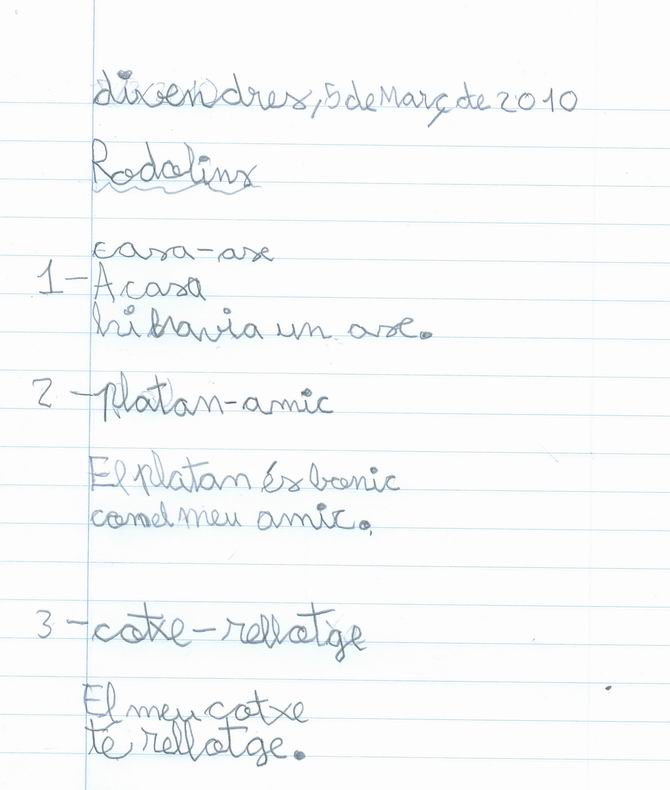 divendres, 5 de Març de 2010
Rodolins
casa-ase
1- A casa
hi havia un ase.
2 -platan-amic
El platan és bonic
com el meu amic.
3 -cotxe-rellotge
El meu cotxe
té rellotge.